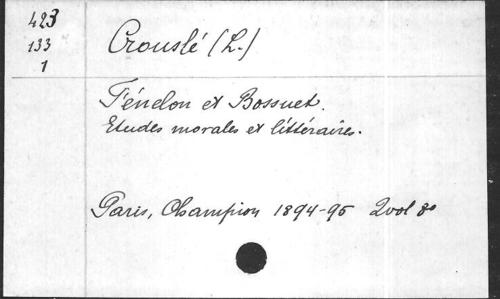 423
133
1
Crouslé (L.)
Fénelon et Bossuet.
Etudes morales et littéraires.
Paris, Champion 1894-95 2 vol 8°